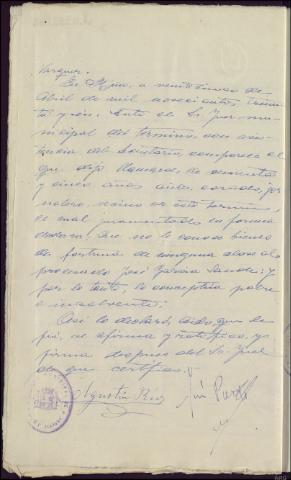 Vazquez.
En Agrón, a veinticinco de
Abril de mil novecientos treinta
y seis. Ante el Sr. Juez mu-
nicipal del termino, con asis-
tencia del Secretario, comparece el
que dijo llamarse de
y cinco años de edad, casado, jor-
nalero, vecino de este termino,
el cual juramentado en forma
declara: Que no le conoce bienes
de fortuna de ninguna clase al
procesado José García; y
por lo tanto, lo conceptua pobre
e insolvente.
Así lo declaró, leido que le
fué, se afirma y ratifica, y
firma despues del Sr. Juez
de que certifico.-
Agustín
José